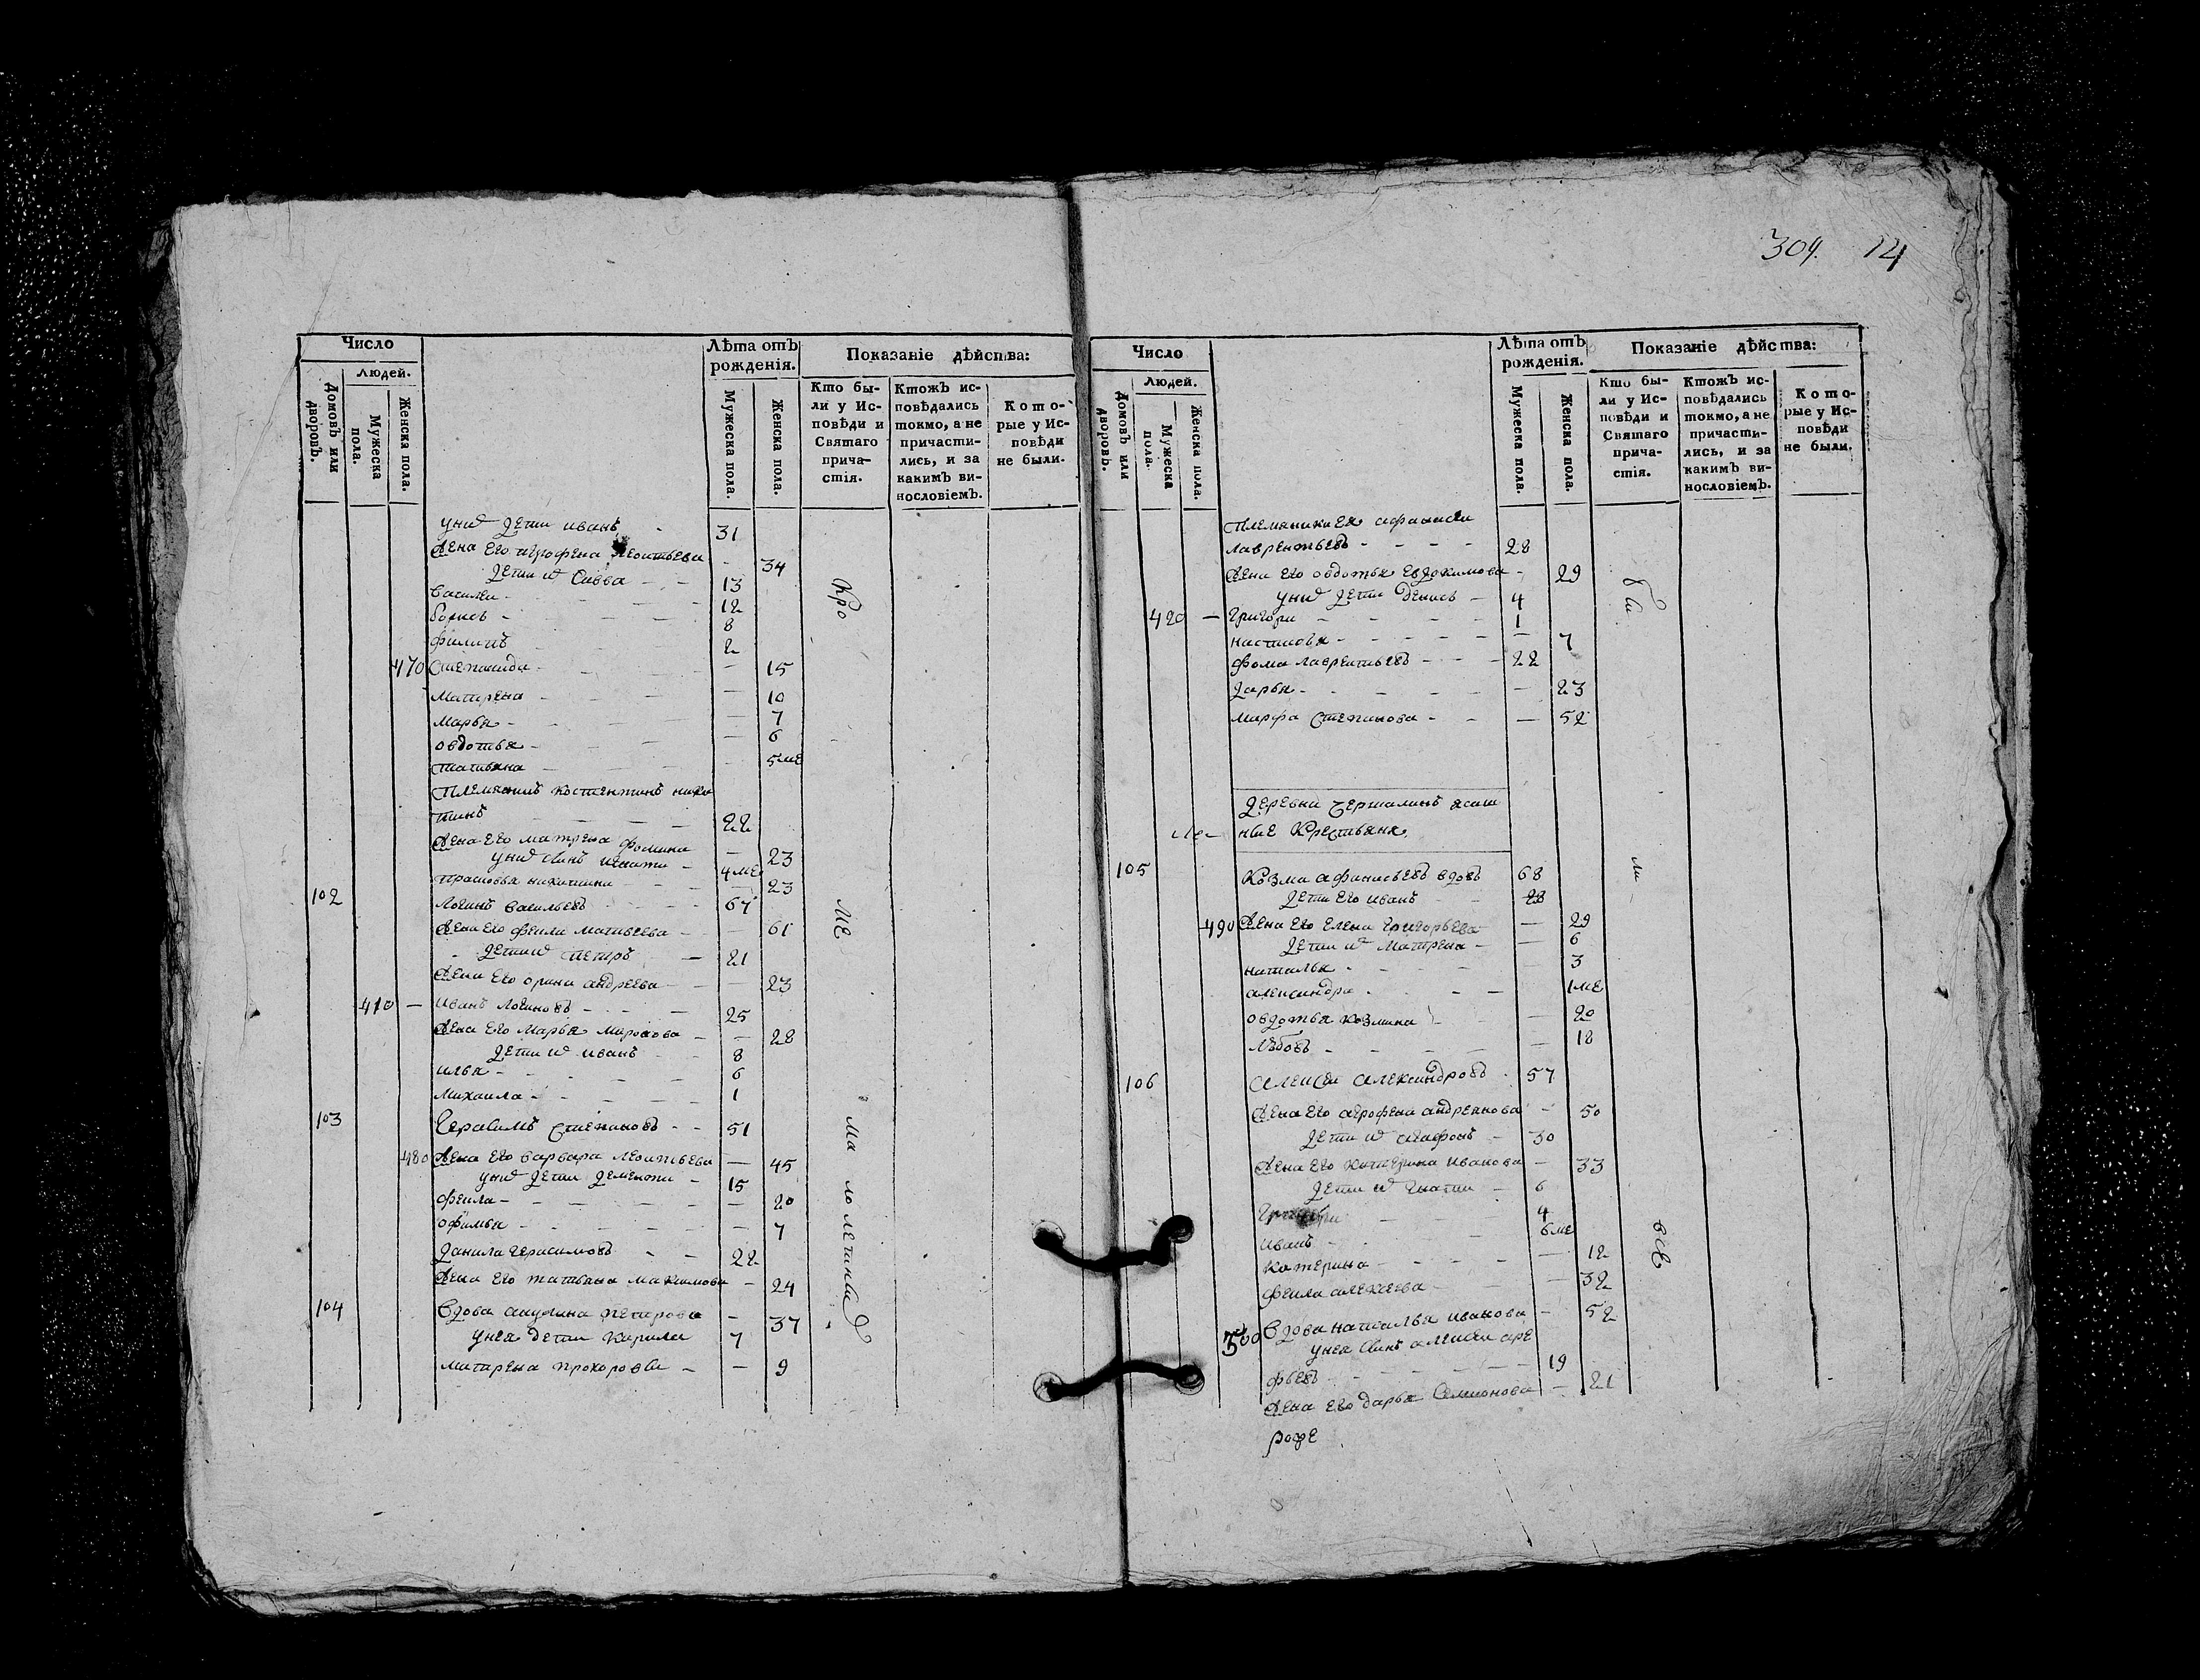 304. 14
Число
Людей.
Домовъ или дворовъ.
Мужеска пола.
Женска пола.
Лѣта отъ рожденія.
Мужеска пола.
Женска пола.
Показаніе дѣйства:
Кто бы-
ли у Ис-
повѣди и
Святаго
прича-
стія.
Ктожъ ис-
повѣдались
токмо, а не
причасти-
лись, и за
какимъ ви-
нословіемъ.
Кото-
рые у Ис-
повѣди
не были.
уних дети иванъ 31
Жена его агрофена леонтьева 34
дети их Савва 13
Василеи 12
борисъ 8
филипъ 2
470 Степанида 15
матрена 10
марья 7
овдотья 6
татьяна 5 ме
племяникъ костентинъ ники
тинъ 22
Жена его матрена фомина 23
уних сынъ игнати 4 ме
прасковья никитина 23
102 логинъ васильевъ 67
Жена его фекла матвеева 61
дети их петръ 21
Жена его орина андреева 23
410 — иванъ логиновъ 25
Жена его марья миронова 28
дети их иванъ 8
илья 6
михаила 1
103 Герасимъ степановъ 51
480 Жена его варвара леонтьева 45
уних дети дементи 15
фекла 20
офимья 7
данила герасимовъ 22
Жена его татьяна макимова 24
104 Вдова акулина петрова 37
унея дети кирила 7
матрена прохоровы 9
Кро
ме
ма ло летных
Число
Людей.
Домовъ или дворовъ.
Мужеска пола.
Женска пола.
Лѣта отъ рожденія.
Мужеска пола.
Женска пола.
Показаніе дѣйства:
Кто бы-
ли у Ис-
повѣди и
Святаго
прича-
стія.
Ктожъ ис-
повѣдались
токмо, а не
причасти-
лись, и за
какимъ ви-
нословіемъ.
Кото-
рые у Ис-
повѣди
не были.
племяники ея афанаси
лаврентьевъ 28
Жена его овдотья Евдокимова 29
уних дети денисъ 4
420 — григори 1
настасья 7
фома лаврентьевъ 22
дарья 23
марфа степанова 52
деревни
ные крестьяня
105 Козма афанасьевъ вдовъ 68
дети его иванъ 28
490 Жена его елена григорьева 29
дети их матрена 6
наталья 3
александра 1 ме
овдотья козмина 20
любовь 18
106 Алексеи александровъ 57
Жена его агрофена андреянова 50
дети их агафонъ 30
Жена его катерина иванова 33
дети их игнати 6
григори 4
иванъ 6 ме
катерина 12
фекла алексеева 32
500 Вдова наталья иванова 52
унея сынъ алексеи аре
фьевъ 19
Жена его дарья Семионова 21
бы
ли
все